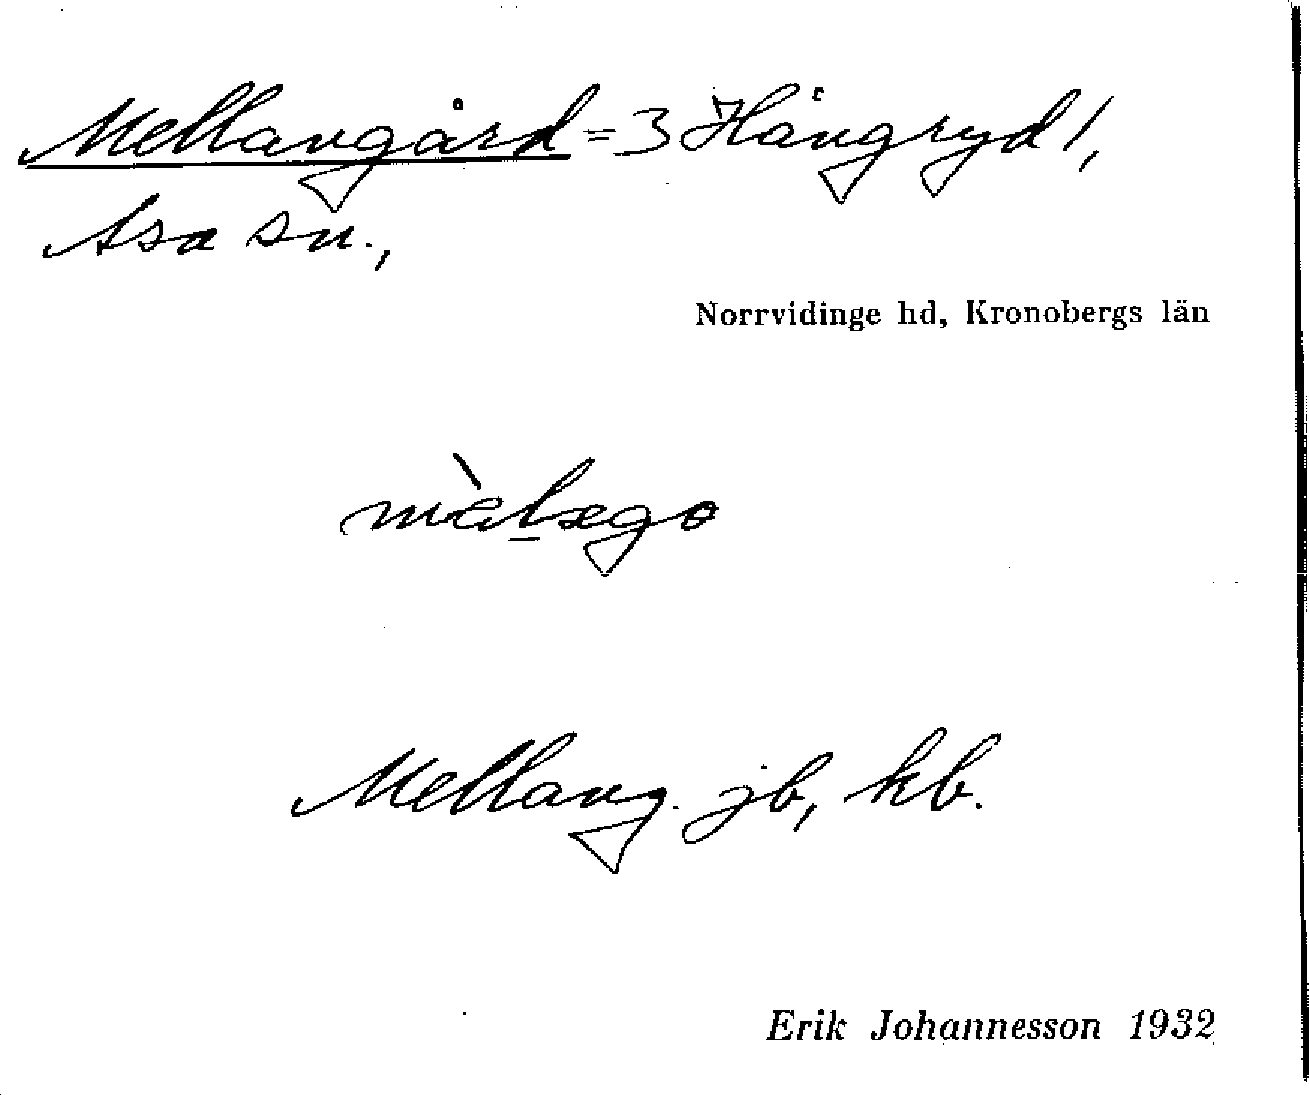 Mellangård = 3 Hångryd 1,
Asa sn.,
Norrvidinge hd, Kronobergs län
Mellang. jb, kb.
Erik Johannesson 1932